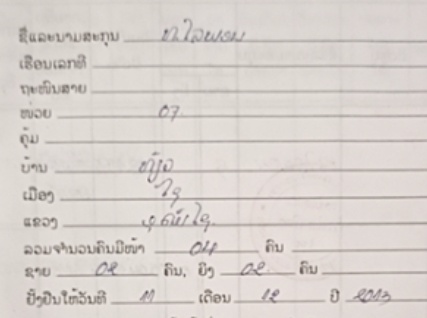 ຊື່ແລະນາມສະກຸນ ທ. ໄລພອນ
ເຮືອນເລກທີ
ຖະໜົນສາຍ
ໜ່ວຍ 07
ຄຸ້ມ
ບ້ານ
ເມືອງ ໄຊ
ແຂວງ ອຸດົມໄຊ
ລວມຈຳນວນຄົນມີໜ້າ 04 ຄົນ
ຊາຍ 02 ຄົນ, ຍິງ 02 ຄົນ
ຢັ້ງຢືນໃຫ້ວັນທີ 11 ເດືອນ 12 ປີ 2013